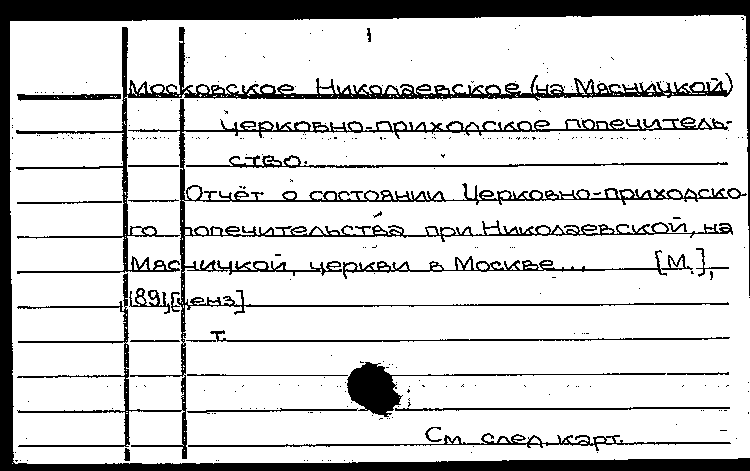 1
Московское Николаевское (на Мясницкой)
церковно-приходское попечитель-
ство.
Отчёт о состоянии Церковно-приходско-
го попечительства при Николаевской, на
Мясницкой, церкви в Москве... [М.],
1891[ценз].
т.
См. след. карт.